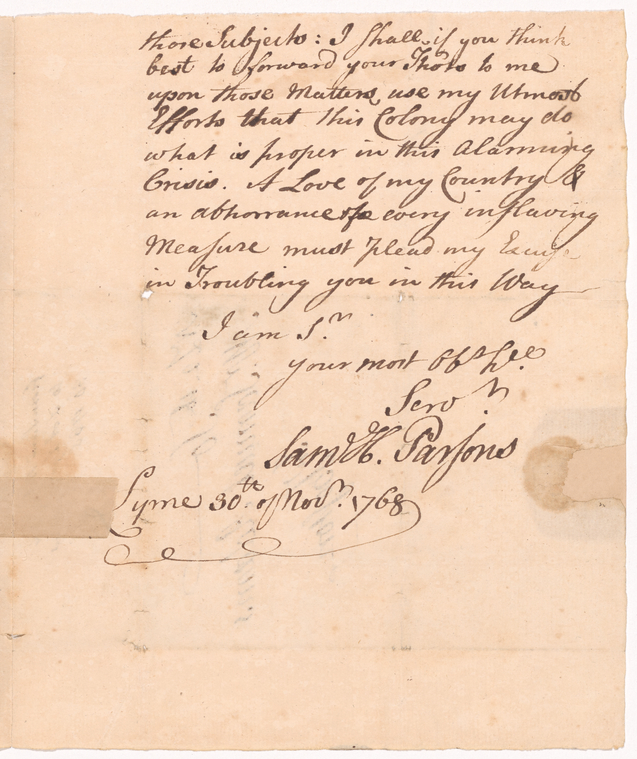 those Subjects: I shall if you think
best to forward your Thots to me
upon those Matters, use my Utmost
Efforts that this Colony may do
what is proper in this Alarming
Crisis. A Love of my Country &
an abhorrance of every inslaving
Measure must plead my Excuse
in Troubling you in this Way
I am Sr
your most Obt hle
Servt
Saml H. Parsons
Lyme 30th. of Novr. 1768